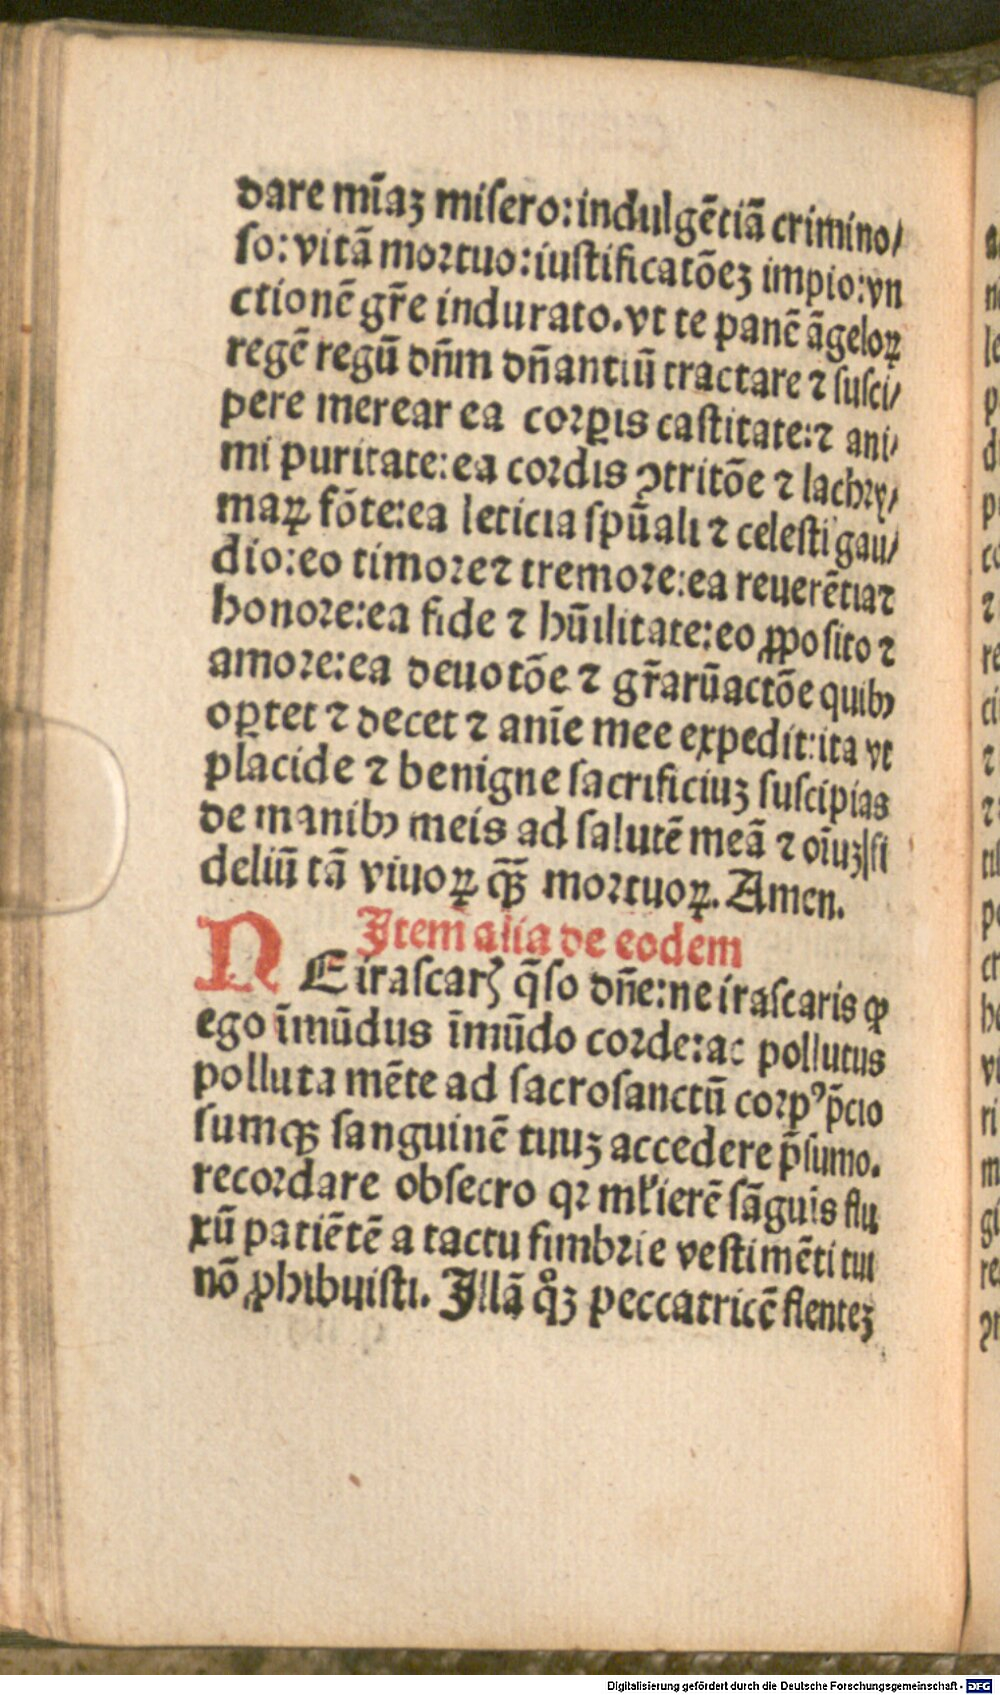 dare mīaꝫ misero: indulgētiā crimino/
so: vitā mortuo: iustificatōeꝫ impio: vn
ctionē gr̄e indurato. vt te panē āgeloꝝ
regē regū dn̄m dn̄antiū tractare ⁊ susci/
pere merear ea corꝑis castitate: ⁊ ani/
mi puritate: ea cordis ꝯtritōe ⁊ lachry/
maꝝ fōte: ea leticia spūali ⁊ celesti gau/
dio: eo timore ⁊ tremore: ea reuerētia ⁊
honore: ea fide ⁊ hūilitate: eo ꝓposito ⁊
amore: ea deuotōe ⁊ gr̄arū actōe quibꝰ
oꝑtet ⁊ decet ⁊ anīe mee expedit: ita vt
placide ⁊ benigne sacrificiuꝫ suscipias
de manibꝰ meis ad salutē meā ⁊ oīuꝫ fi
deliū tā viuoꝝ qꝫ̄ mortuoꝝ. Amen.
Item alia de eodem
NE irascarꝭ q̄so dn̄e: ne irascaris ꝙ
ego īmūdus īmūdo corde: ac pollutus
polluta mēte ad sacrosanctū corpꝰ p̄cio
sumqꝫ sanguinē tuuꝫ accedere p̄sumo.
recordare obsecro qꝛ mł'ierē sāguis flu
xū patiētē a tactu fimbrie vestimēti tui
nō ꝓhibuisti. Illā qͦꝫ peccatricē flenteꝫ
Digitalisierung gefördert durch die Deutsche Forschungsgemeinschaft - DFG